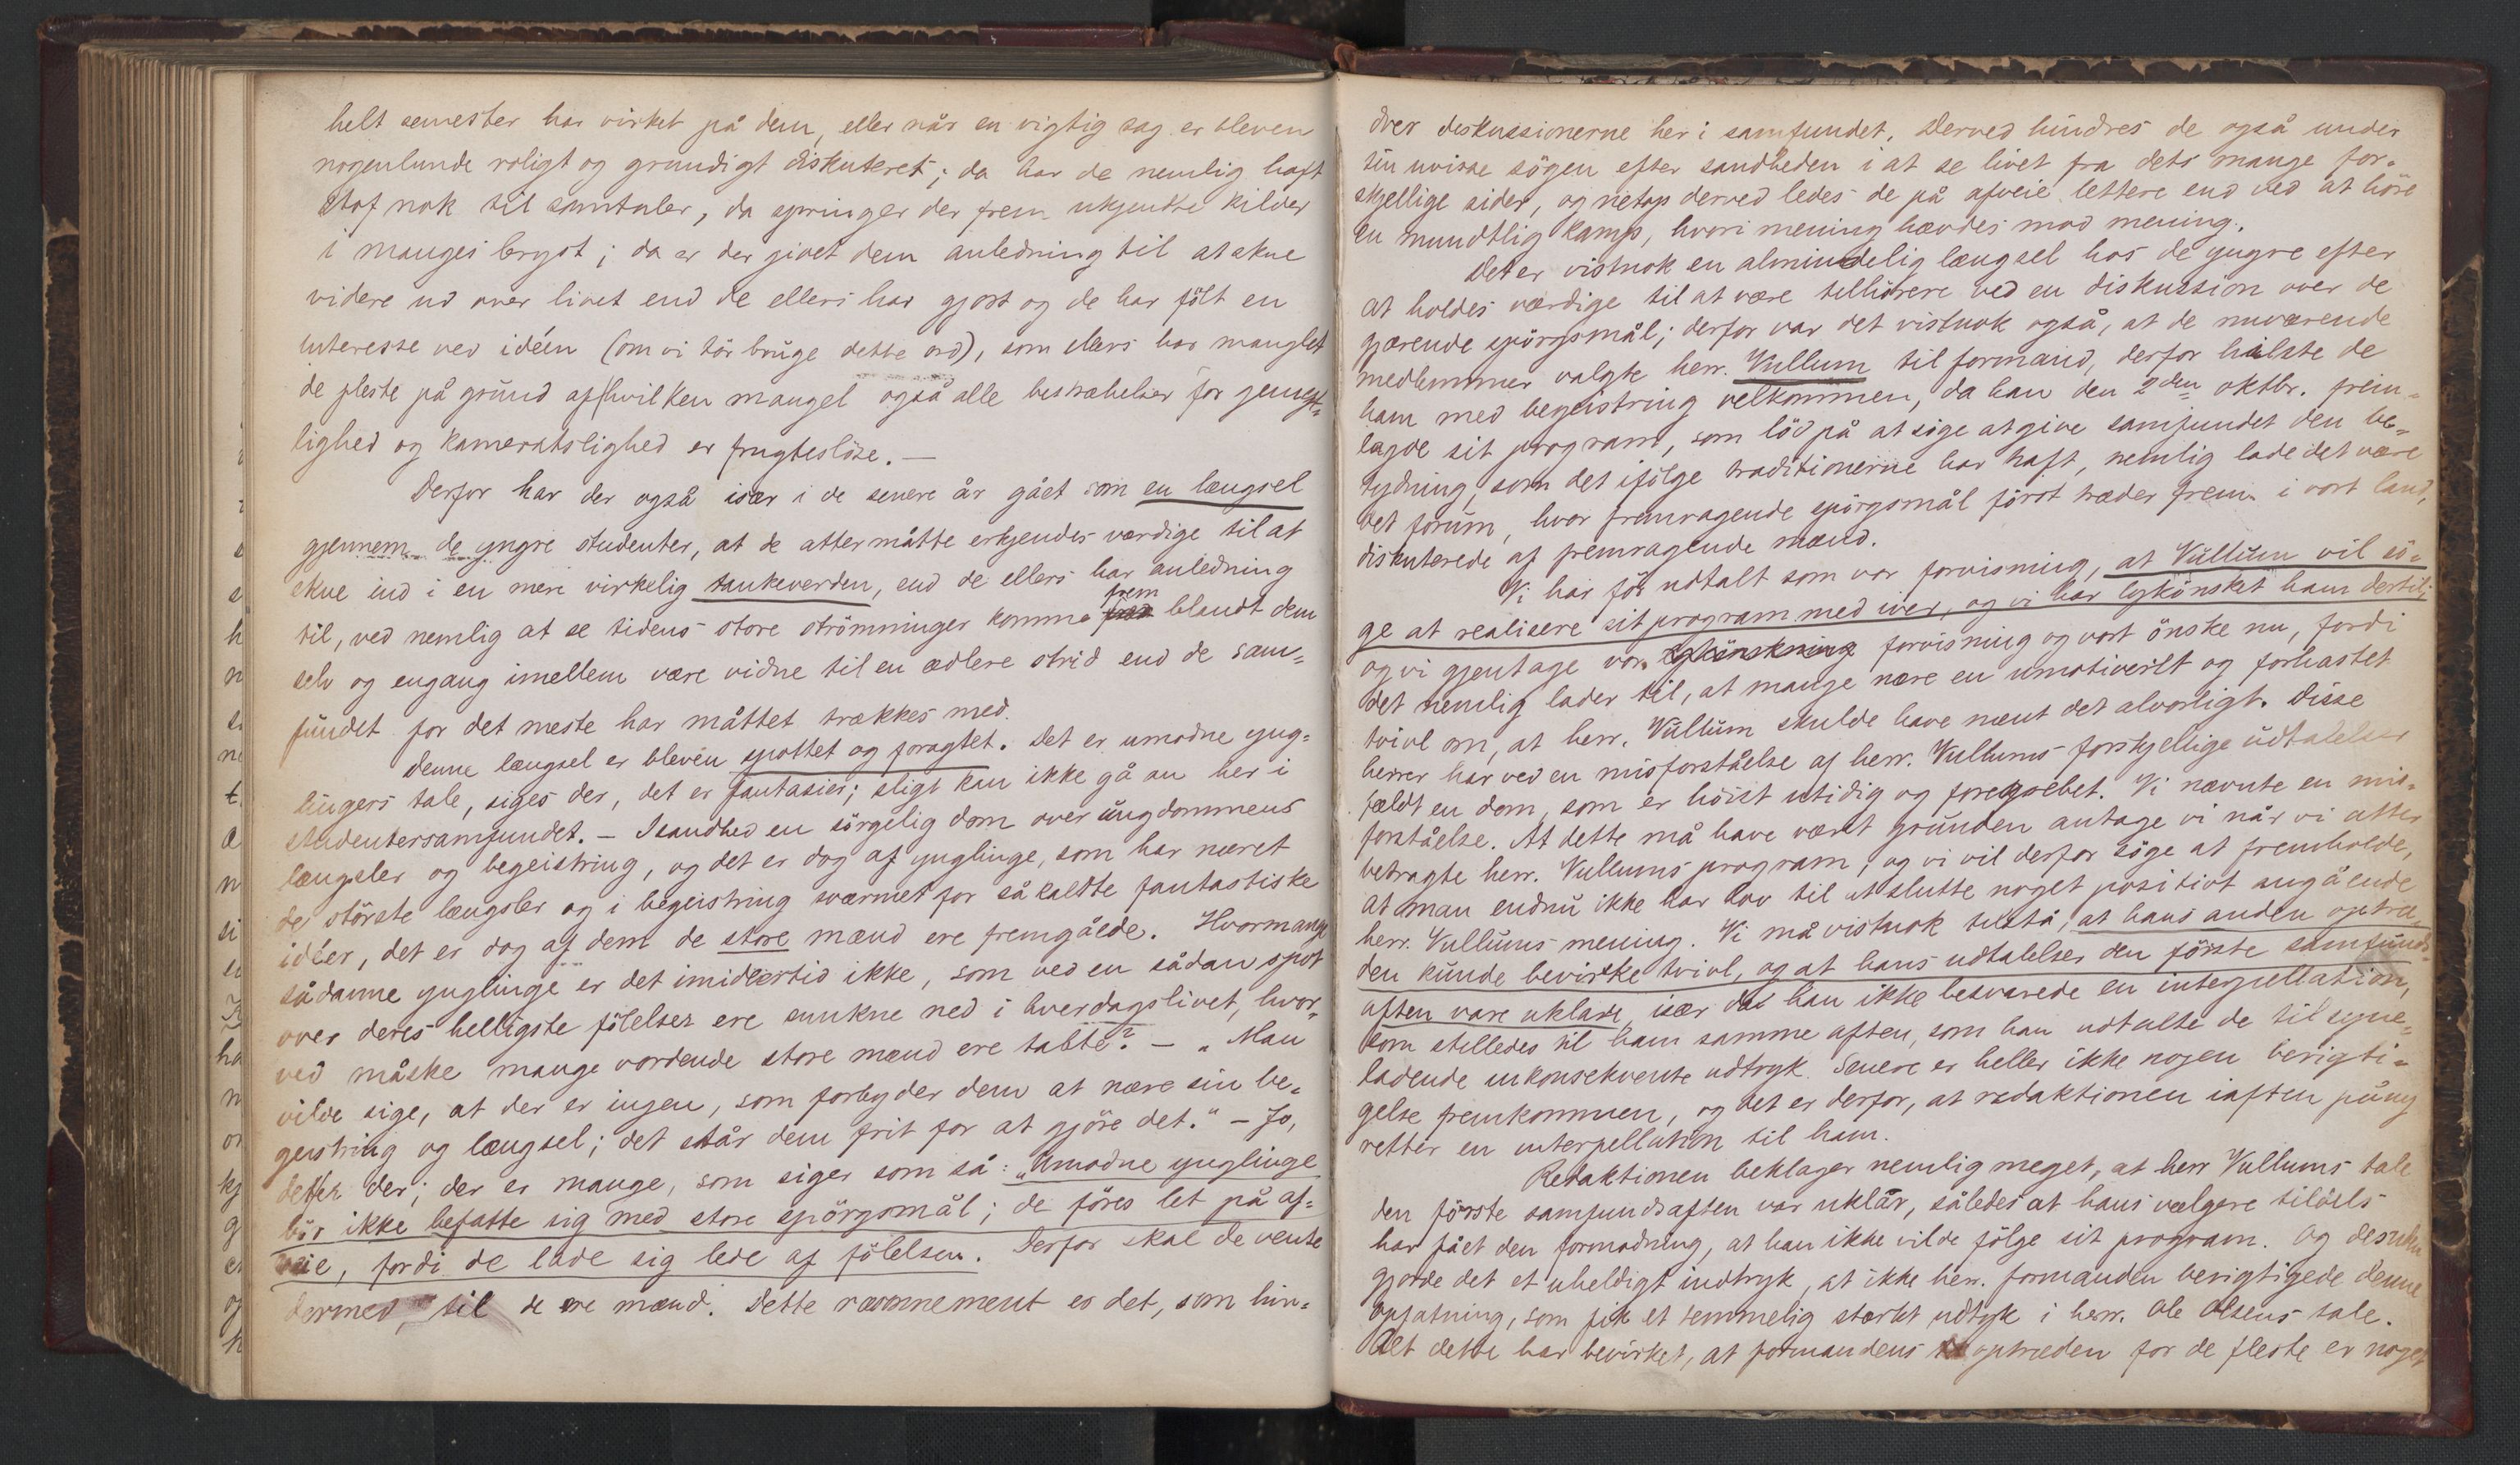 helt semester har virket på dem, eller når en vigtig sag er bleven
nogenlunde roligt og grundigt diskuteret; da har de nemlig haft
stof nok til samtaler, da springer der frem ukjendte kilder
i manges bryst; da er der givet dem anledning til at skue
videre ud over livet end de ellers har gjort og de har fölt en
interesse ved idéen (om vi tör bruge dette ord), som ellers har manglet
de fleste på grund af hvilken mangel også alle bestræbelser for gemyt-
lighed og kameratslighed er frugteslöse. —
Derfor har der også især i de senere år gået som en længsel
gjennem de yngre studenter, at de atter måtte erkjendes værdige til at
skue ind i en mere virkelig tankeverden, end de ellers har anledning
til, ved nemlig at se tidens store strömninger komme frem blandt dem
selv og engang imellem være vidne til en ædlere strid end de sam-
fundet for det meste har måttet trækkes med.
Denne længsel er bleven spottet og foragtet. Det er umodne yng-
lingers tale, siges der, det er fantasier; sligt kan ikke gå an her i
studentersamfundet. — I sandhed en sörgelig dom over ungdommens
længsler og begeistring, og det er dog af ynglinge, som har næret
de störste længsler og i begeistring sværmet for såkaldte fantastiske
idéer, det er dog af dem de store mænd ere fremgåede. Hvormange
sådanne ynglinge er det imidlertid ikke, som ved en sådan spot
over deres helligste fölelser ere sunkne ned i hverdagslivet, hvor-
ved måske mange vordende store mænd ere tabte? — „Man
vilde sige, at der er ingen, som forbyder dem at nære sin be-
geistring og længsel; det står dem frit for at gjöre det.“ — Jo,
det er der; der er mange, som siger som så: „Umodne ynglinge
bör ikke befatte sig med store spörgsmål; de föres let på af-
veie, fordi de lade sig lede af fölelsen. Derfor skal de vente
dermed, til de ere mænd. Dette ræsonnement er det, som hin-
drer diskussionerne her i samfundet. Derved hindres de også under
sin uvisse sögen efter sandheden i at se livet fra dets mange for-
skjellige sider, og netop derved ledes de på afveie lettere end ved at höre
en mundtlig kamp, hvori mening hævdes mod mening.
Det er vistnok en almindelig længsel hos de yngre efter
at holdes værdige til at være tilhörere ved en diskussion over de
gjærende spörgsmål; derfor var det vistnok også, at de nuværende
medlemmer valgte herr. Vullum til formand, derfor hilste de
ham med begeistring velkommen, da han den 2den oktbr. frem-
lagde sit program, som löd på at söge at give samfundet den be-
tydning, som det ifölge traditionerne har haft, nemlig lade det være
det forum, hvor fremragende spörgsmål först træder frem i vort land,
diskuterede af fremragende mænd.
Vi har för udtalt som vor forvisning, at Vullum vil sö-
ge at realisere sit program med iver, og vi har lykönsket ham dertil;
og vi gjentage vor lykönskning forvisning og vort önske nu, fordi
det nemlig lader til, at mange nære en umotiveret og forhastet
tvivl om, at herr. Vullum skulde have ment det alvorligt. Disse
herrer har ved en misforståelse af herr. Vullums forskjellige udtalelser
fældt en dom, som er höist utidig og foregrebet. Vi nævnte en mis-
forståelse. At dette må have været grunden antage vi når vi atter
betragte herr. Vullums program, og vi vil derfor söge at fremholde,
at man endnu ikke har lov til at slutte noget positivt angående
herr. Vullums mening. Vi må vistnok tilstå, at hans anden optræ-
den kunde bevirke tvivl, og at hans udtalelser den förste samfunds-
aften vare uklare, især da han ikke besvarede en interpellation,
som stilledes til ham samme aften, som han udtalte de tilsyne-
ladende inkonsekvente udtryk. Senere er heller ikke nogen berigti-
gelse fremkommen, og det er derfor, at redaktionen iaften påny
retter en interpellation til ham.
Redaktionen beklager nemlig meget, at herr Vullums tale
den förste samfundsaften var uklar, således at hans vælgere tildels
har fået den formodning, at han ikke vilde fölge sit program. Og desuden
gjorde det et uheldigt indtryk, at ikke herr. formanden berigtigede denne
opfatning, som fik et temmelig stærkt udtryk i herr. Ole Olsens tale.
Alt dette har bevirket, at formandens optræden for de fleste er noget